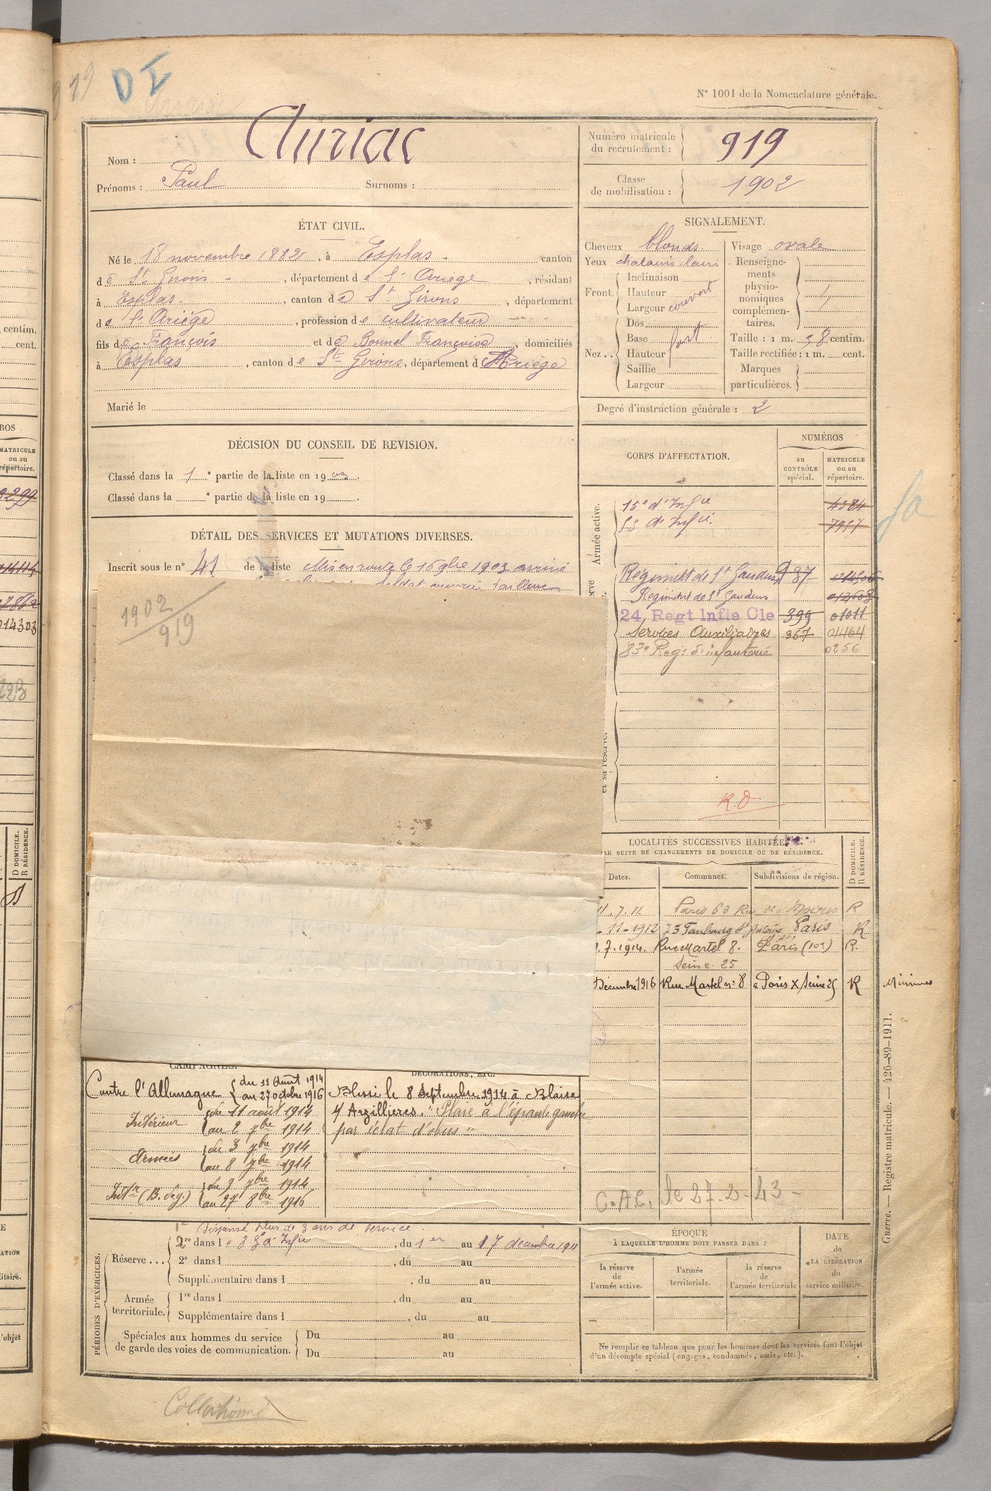 919 DI
N° 1001 de la Nomenclature générale.
Nom : Auriac
Prénoms : Paul Surnoms :
Numéro matricule du recrutement : 919
Classe de mobilisation : 1902
ÉTAT CIVIL.
Né le 18 novembre 1882, à Esplas canton
de St Girons, département de l'Ariège, résidant
à Esplas, canton de St Girons, département
de l'Ariège, profession de cultivateur
fils de François et de Bonnel Françoise, domiciliés
à Esplas, canton de St Girons, département d Ariège
Marié le
SIGNALEMENT.
Cheveux blonds Visage ovale
Yeux chatains clairs
Front. Inclinaison
Hauteur couvert
Largeur
Nez. Dos
Base fort
Hauteur
Saillie
Largeur
Renseignements physionomiques complémentaires.
Taille : 1 m. 58 centim.
Taille rectifiée : 1 m. cent.
Marques particulières.
Degré d'instruction générale : 2
DÉCISION DU CONSEIL DE REVISION.
Classé dans la 1e partie de la liste en 1903.
Classé dans la e partie de la liste en 19 .
DÉTAIL DES SERVICES ET MUTATIONS DIVERSES.
Inscrit sous le n° 41 de la liste Mis en route le 16 9bre 1903 arrivé
1902
919
CORPS D'AFFECTATION.
NUMÉROS
au CONTRÔLE spécial.
MATRICULE ou au répertoire.
Armée active.
15e d'Infie 4384
83 d'Infie 7957
Régiment de St Gaudens 87
Régiment de St Gaudens
24 Regt Infie Cle 399 01011
Services Auxiliaires 367 01464
83e Reg: d'infanterie 0256
R.D
LOCALITÉS SUCCESSIVES HABITÉES
PAR SUITE DE CHANGEMENTS DE DOMICILE OU DE RÉSIDENCE.
Dates. Communes. Subdivisions de région. D DOMICILE. R RÉSIDENCE.
11.7.11 Paris 63 Rue R
11-1912 73 Faubourg St Paris R
7.1914. Rue Martel 8. Paris (10e) R.
Seine. 25
Décembre 1916 Rue Martel n° 8 Paris X Seine 25 R
CAMPAGNES.
Contre l'Allemagne du 11 Août 1914
au 27 octobre 1916
Intérieur du 11 août 1914
au 2 7bre 1914
Armées du 3 7bre 1914
au 8 7bre 1914
Intr (B. leg.) du 9 7bre 1914
au 27 8bre 1916
DÉCORATIONS, ETC.
Blessé le 8 Septembre 1914 à Blaise
s/ Arzillières. "Plaie à l'épaule gauche
par éclat d'obus"
C.A.L. le 27-2-43-
PÉRIODES D'EXERCICES.
1re Dispensé plus de 3 ans de service.
Réserve... 2e dans le 83e d'Infie, du 1er au 17 décembre 1911
2e dans l , du au
Supplémentaire dans l , du au
Armée territoriale. 1re dans l , du au
Supplémentaire dans l , du au
Spéciales aux hommes du service de garde des voies de communication. Du au
Du au
ÉPOQUE
À LAQUELLE L'HOMME DOIT PASSER DANS :
la réserve de l'armée active.
l'armée territoriale.
la réserve de l'armée territoriale.
DATE de LA LIBÉRATION du service militaire.
Ne remplir ce tableau que pour les hommes dont les services font l'objet
d'un décompte spécial (engagés, condamnés, omis, etc.).
Guerre. — Registre matricule. — 426-89-1911.
Collationné